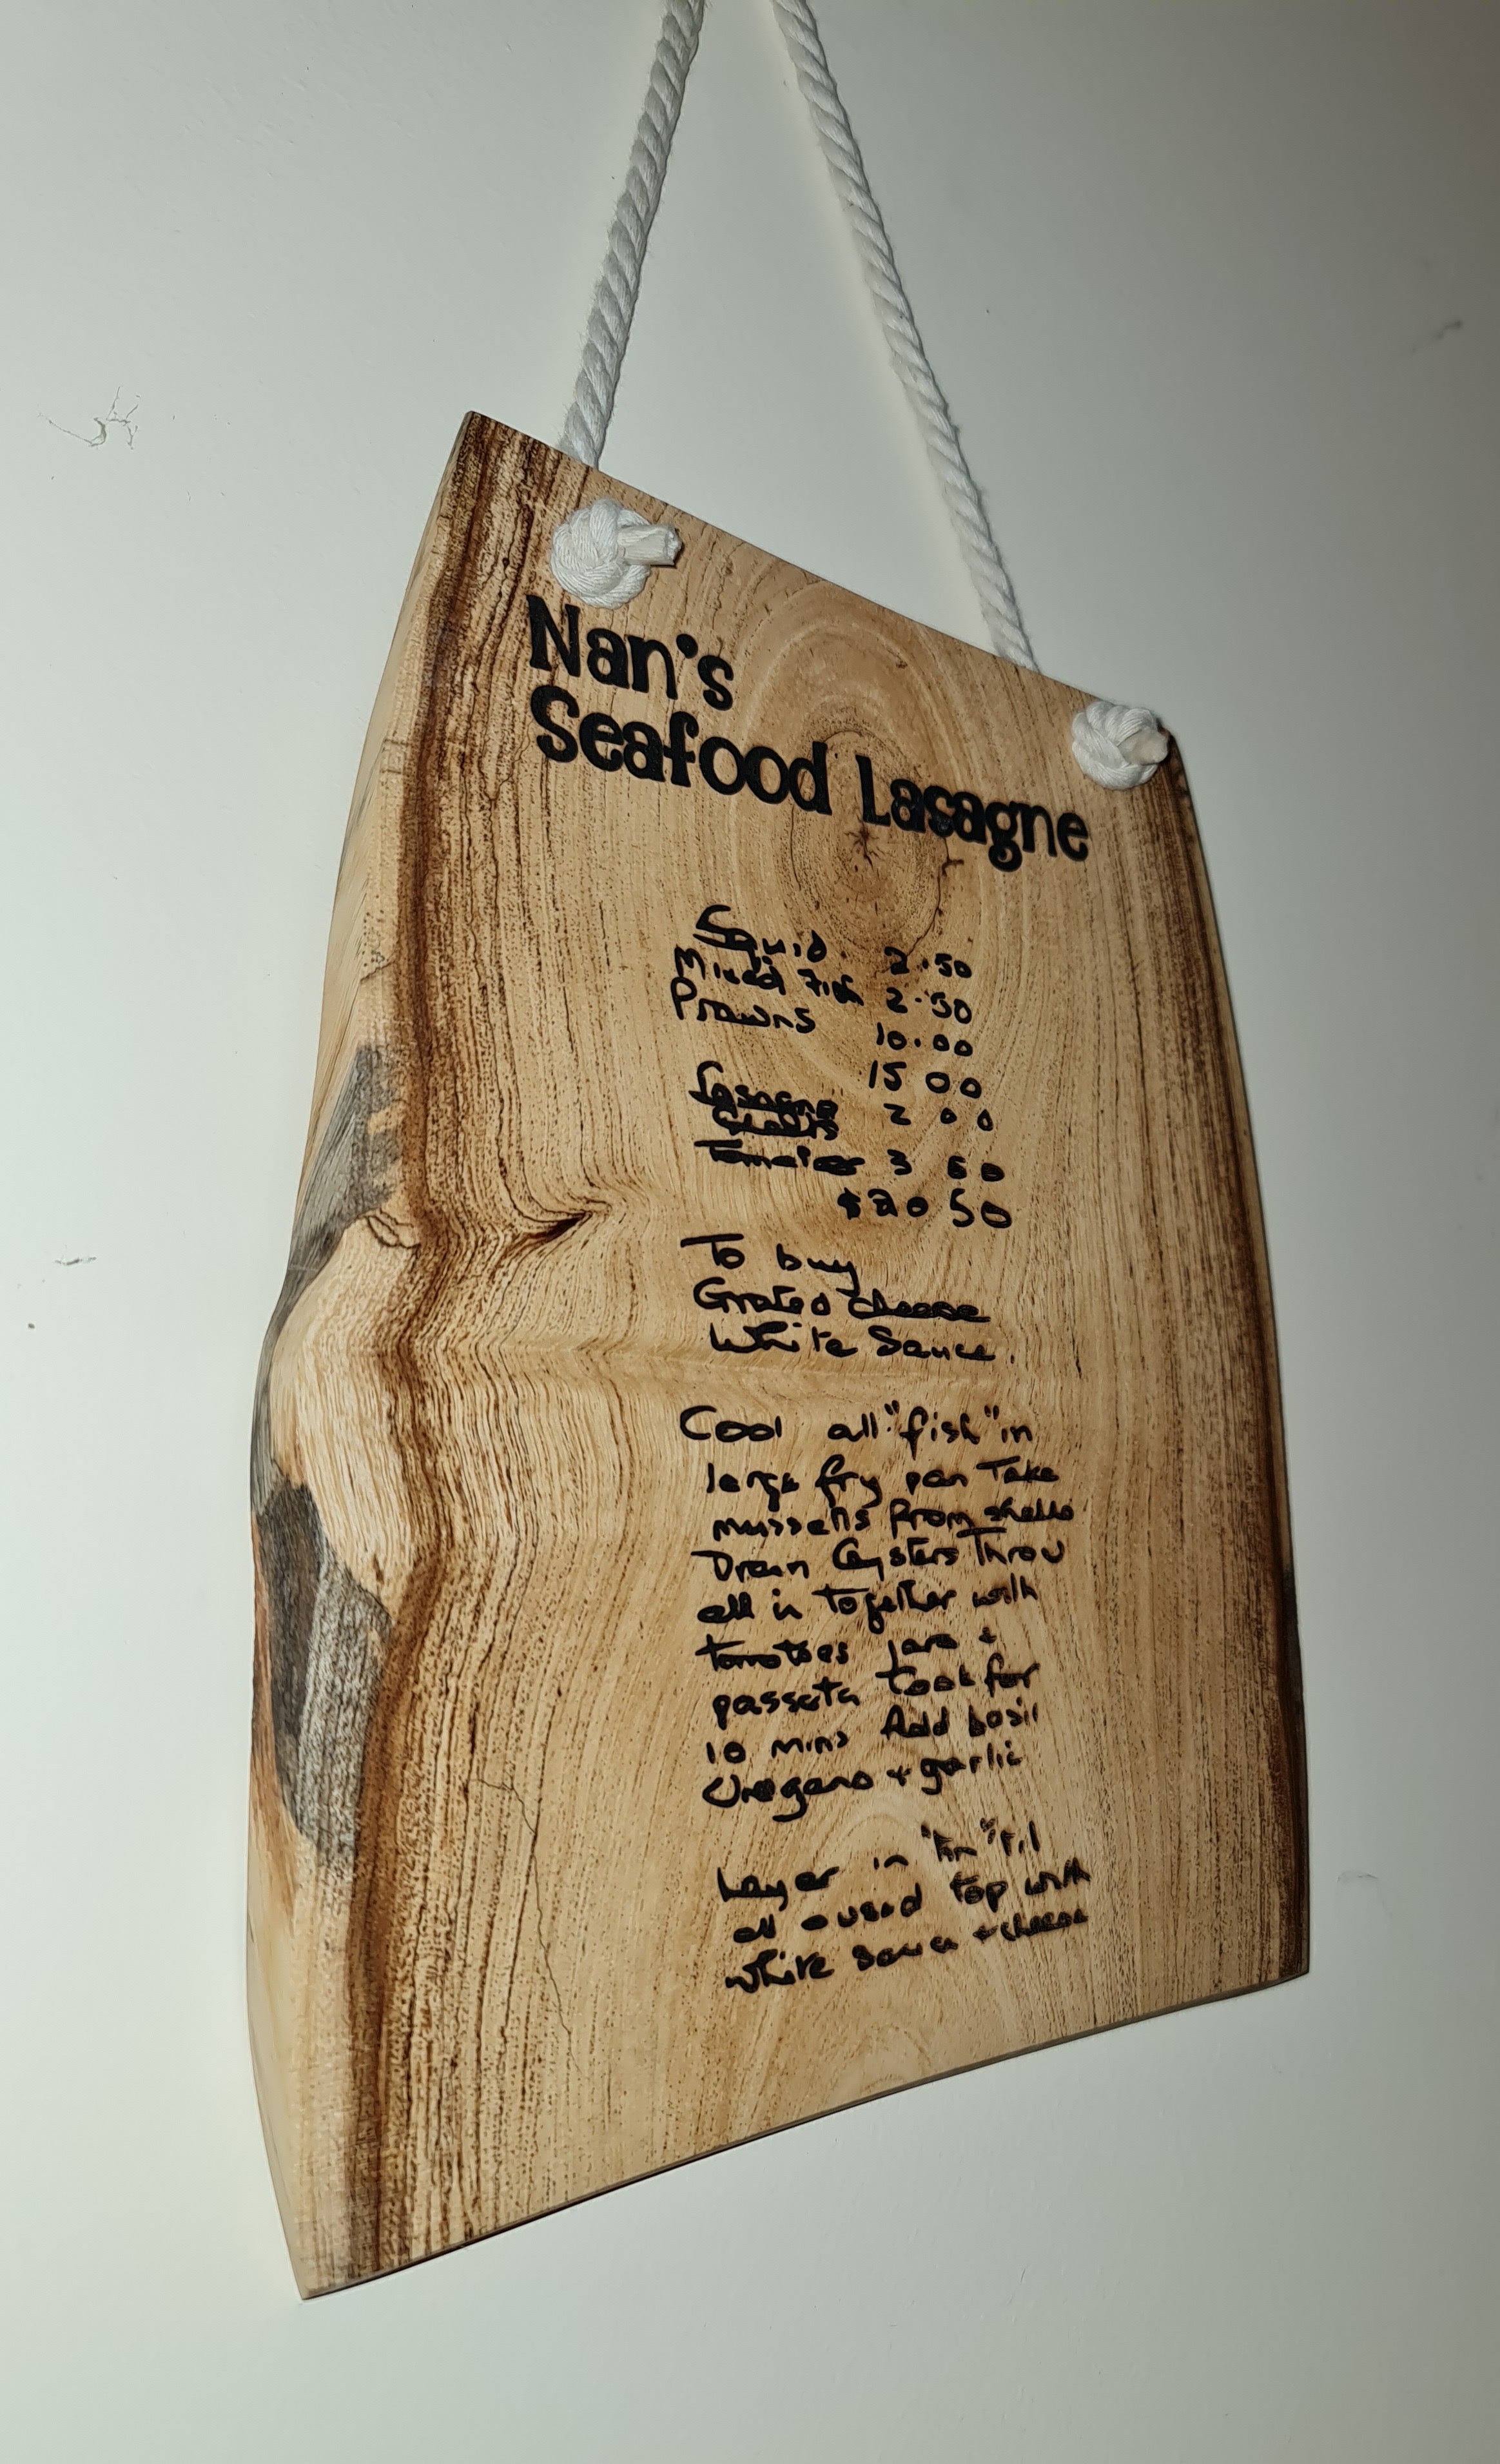 Nan's
Seafood Lasagne
Squid 2.50
Mixed Fish 2.50
Prawns 10.00
15 00
Lasagne 2 00
Sheets
Tomatoes 3 50
$20 50
To buy
Grated cheese
White Sauce.
Cook all "fish" in
large fry pan Take
mussells from shells
Drain Oysters Throw
all in together with
tomatoes jars +
passata Cook for
10 mins Add basil
Oregano + garlic
Layer in "tin" til
all used top with
white sauce + cheese